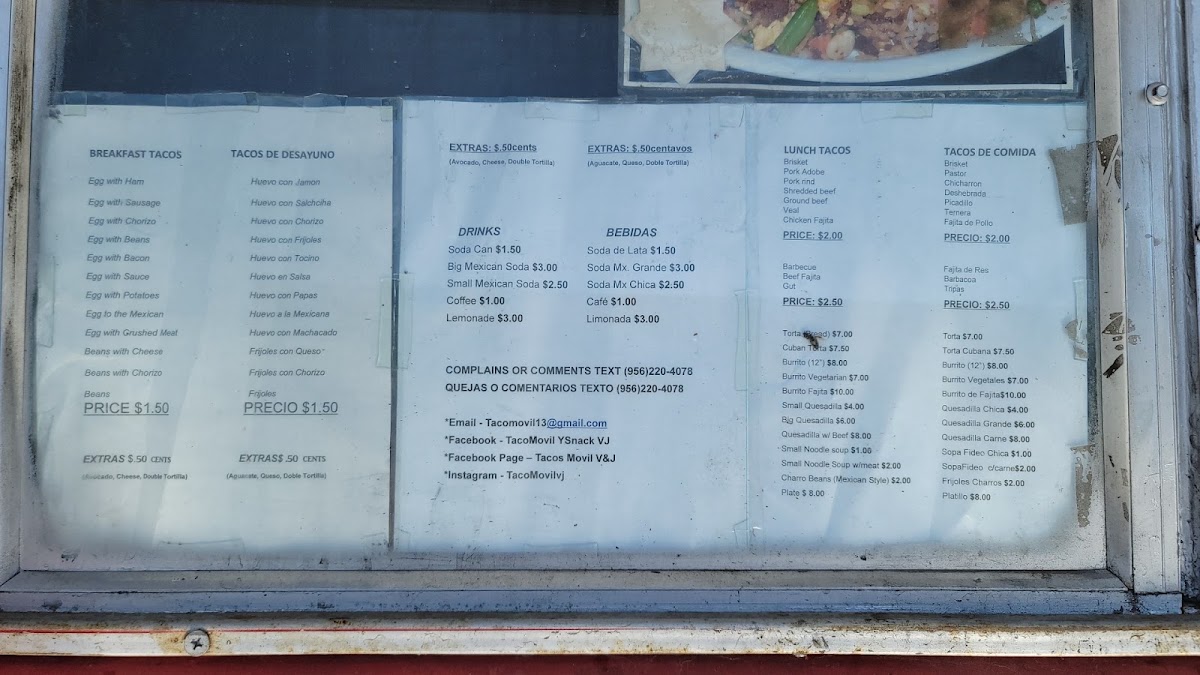 BREAKFAST TACOS
Egg with Ham
Egg with Sausage
Egg with Chorizo
Egg with Beans
Egg with Bacon
Egg with Sauce
Egg with Potatoes
Egg to the Mexican
Egg with Grushed Meat
Beans with Cheese
Beans with Chorizo
Beans
PRICE $1.50
EXTRAS $.50 CENTS
(Avocado, Cheese, Double Tortilla)
TACOS DE DESAYUNO
Huevo con Jamon
Huevo con Salchciha
Huevo con Chorizo
Huevo con Frijoles
Huevo con Tocino
Huevo en Salsa
Huevo con Papas
Huevo a la Mexicana
Huevo con Machacado
Frijoles con Queso
Frijoles con Chorizo
Frijoles
PRECIO $1.50
EXTRAS$ .50 CENTS
(Aguacate, Queso, Doble Tortilla)
EXTRAS: $.50cents
(Avocado, Cheese, Double Tortilla)
EXTRAS: $.50centavos
(Aguacate, Queso, Doble Tortilla)
DRINKS
Soda Can $1.50
Big Mexican Soda $3.00
Small Mexican Soda $2.50
Coffee $1.00
Lemonade $3.00
BEBIDAS
Soda de Lata $1.50
Soda Mx. Grande $3.00
Soda Mx Chica $2.50
Café $1.00
Limonada $3.00
COMPLAINS OR COMMENTS TEXT (956)220-4078
QUEJAS O COMENTARIOS TEXTO (956)220-4078
*Email - Tacomovil13@gmail.com
*Facebook - TacoMovil YSnack VJ
*Facebook Page – Tacos Movil V&J
*Instagram - TacoMovilvj
LUNCH TACOS
Brisket
Pork Adobe
Pork rind
Shredded beef
Ground beef
Veal
Chicken Fajita
PRICE: $2.00
Barbecue
Beef Fajita
Gut
PRICE: $2.50
Torta (Bread) $7.00
Cuban Torta $7.50
Burrito (12") $8.00
Burrito Vegetarian $7.00
Burrito Fajita $10.00
Small Quesadilla $4.00
Big Quesadilla $6.00
Quesadilla w/ Beef $8.00
Small Noodle soup $1.00
Small Noodle Soup w/meat $2.00
Charro Beans (Mexican Style) $2.00
Plate $ 8.00
TACOS DE COMIDA
Brisket
Pastor
Chicharron
Deshebrada
Picadillo
Ternera
Fajita de Pollo
PRECIO: $2.00
Fajita de Res
Barbacoa
Tripas
PRECIO: $2.50
Torta $7.00
Torta Cubana $7.50
Burrito (12") $8.00
Burrito Vegetales $7.00
Burrito de Fajita$10.00
Quesadilla Chica $4.00
Quesadilla Grande $6.00
Quesadilla Carne $8.00
Sopa Fideo Chica $1.00
SopaFideo c/carne$2.00
Frijoles Charros $2.00
Platillo $8.00